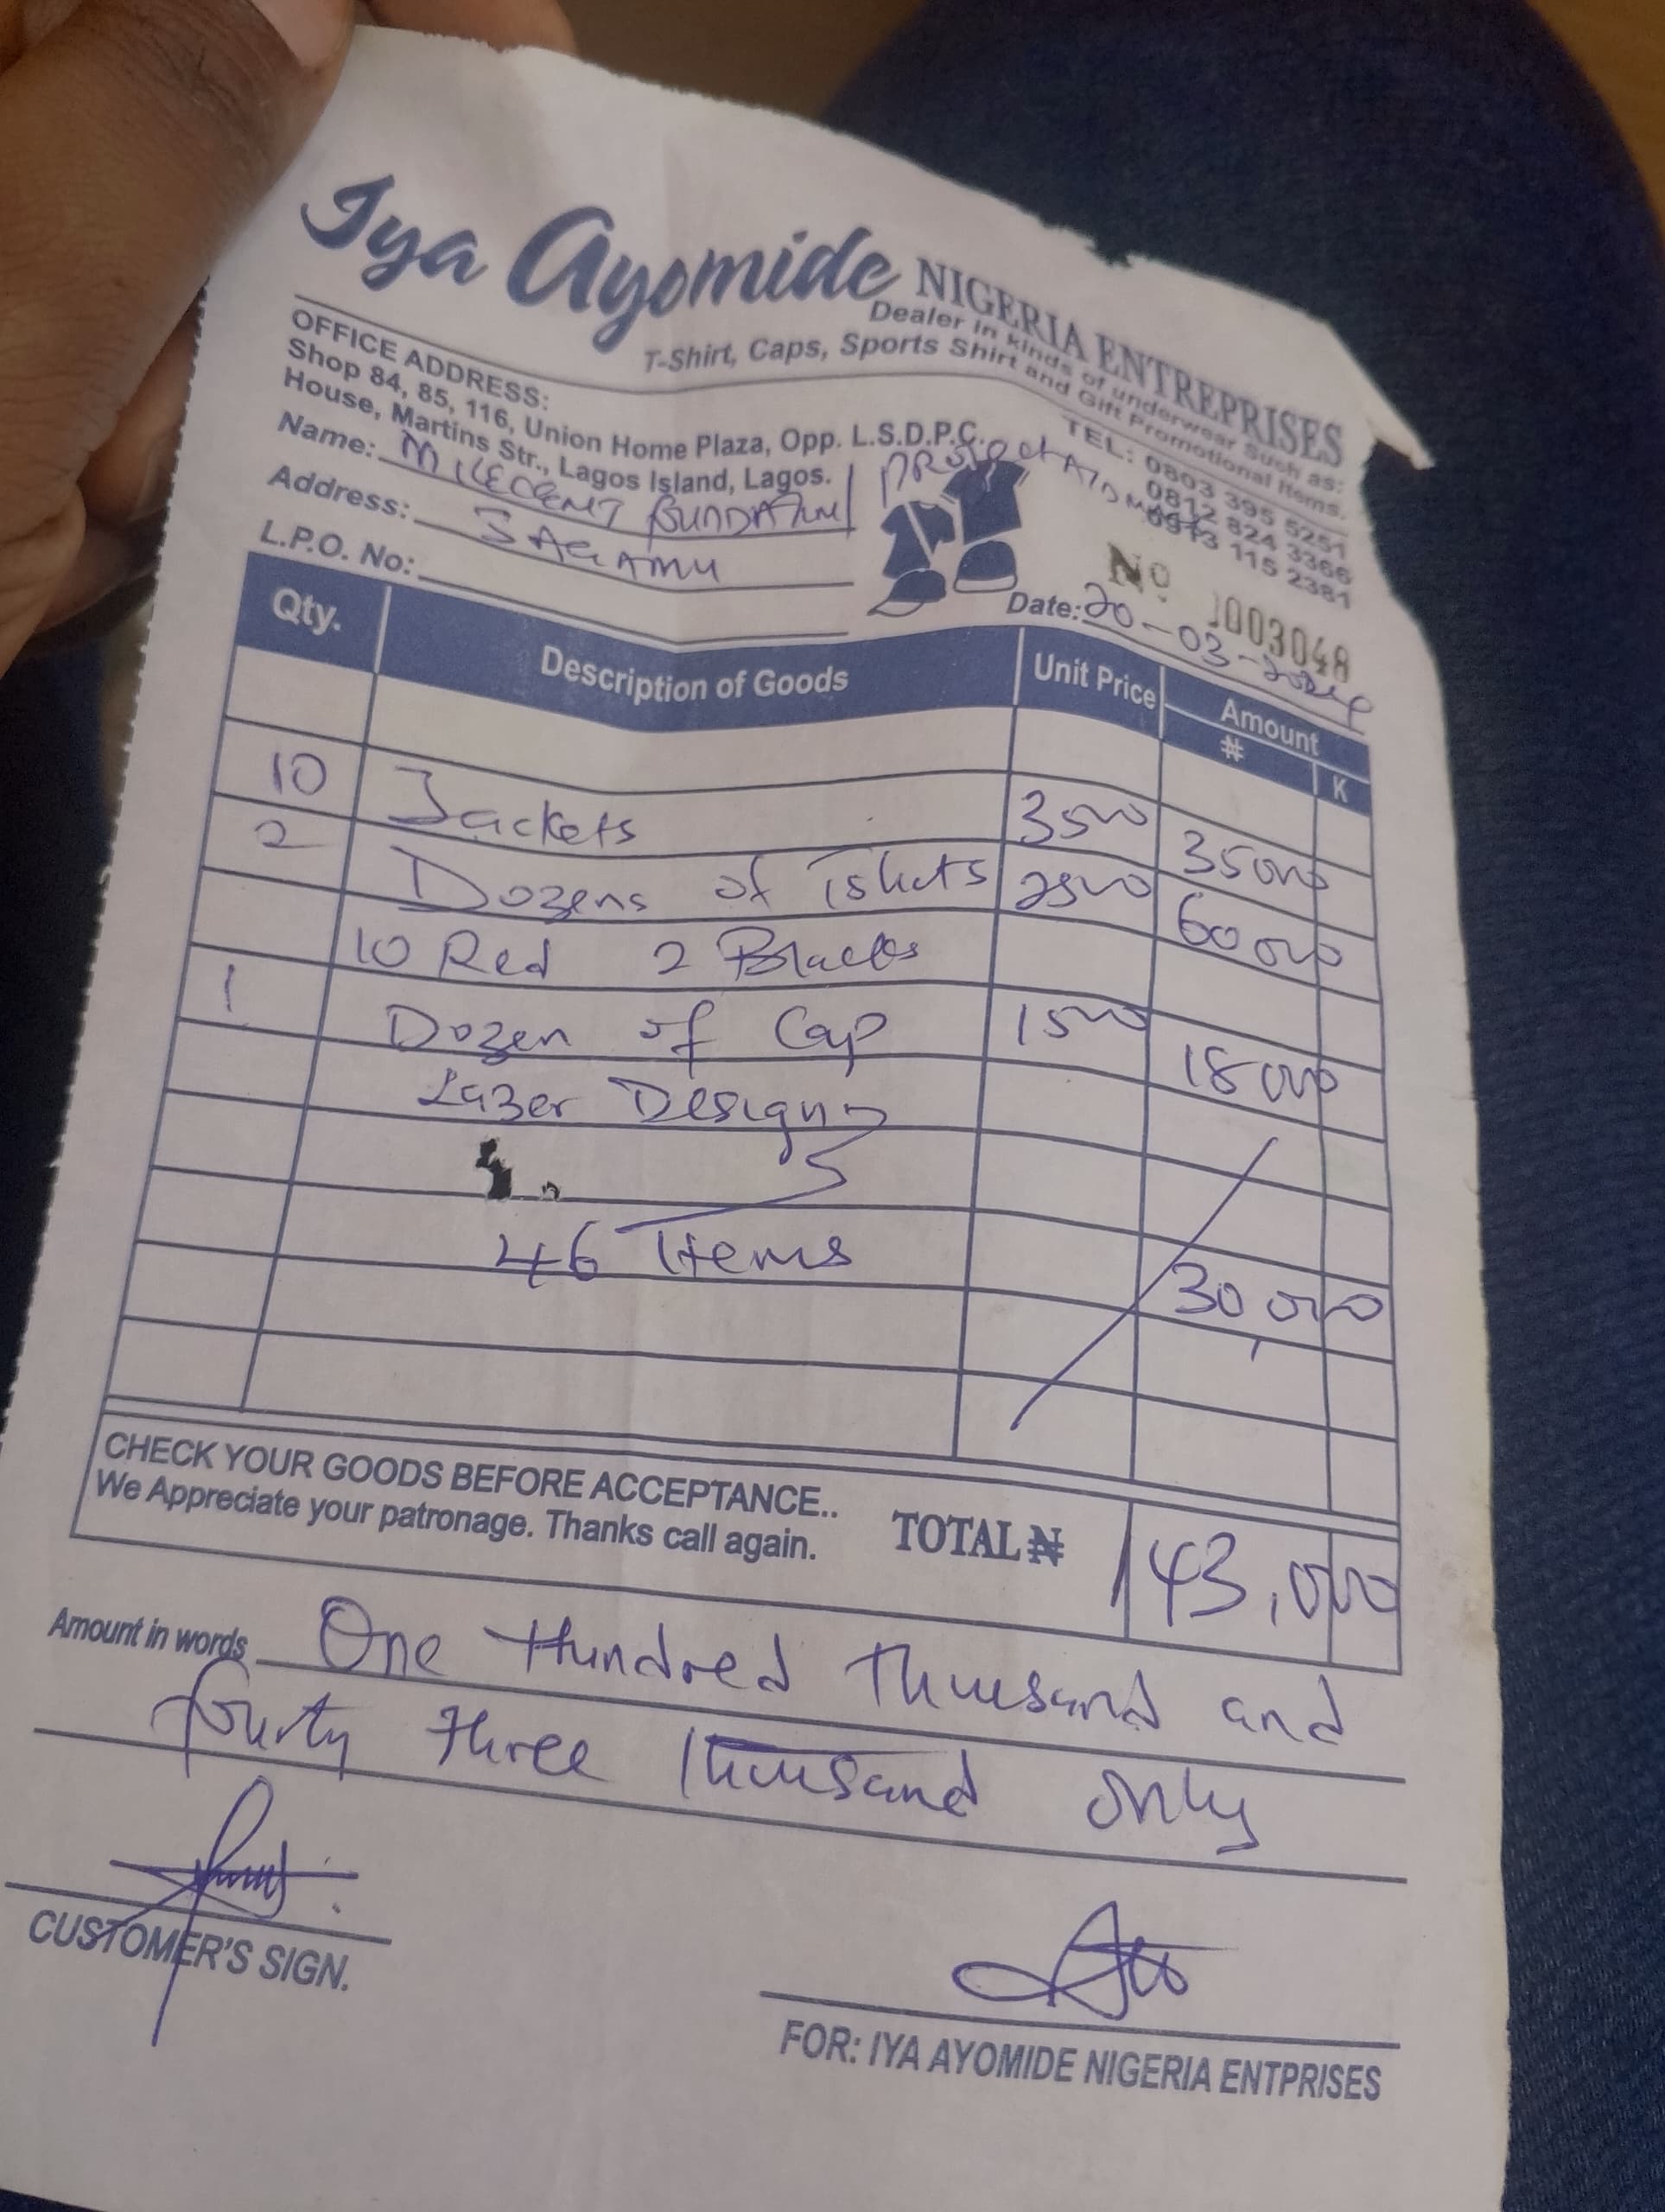 Iya Ayomide NIGERIA ENTREPRISES
Dealer in kinds of underwear Such as:
T-Shirt, Caps, Sports Shirt and Gift Promotional Items.
OFFICE ADDRESS:
Shop 84, 85, 116, Union Home Plaza, Opp. L.S.D.P.C.
House, Martins Str., Lagos Island, Lagos.
TEL: 0803 395 5251
0812 824 3366
0913 115 2381
Name: / PROJECT
Address: SAGAMU
L.P.O. No:
No. 0003048
Date: 20-03-2024
Qty. Description of Goods Unit Price Amount
₦ K
10 Jackets 3500 35000
2 Dozens of Tshirts 2500 60000
10 Red 2 Blacks
1 Dozen of Cap 1500 18000
Lazer Design
46 Items 30,000
CHECK YOUR GOODS BEFORE ACCEPTANCE..
We Appreciate your patronage. Thanks call again.
TOTAL ₦ 143,000
Amount in words One Hundred Thousand and
fourty three Thousand only
CUSTOMER'S SIGN.
FOR: IYA AYOMIDE NIGERIA ENTPRISES